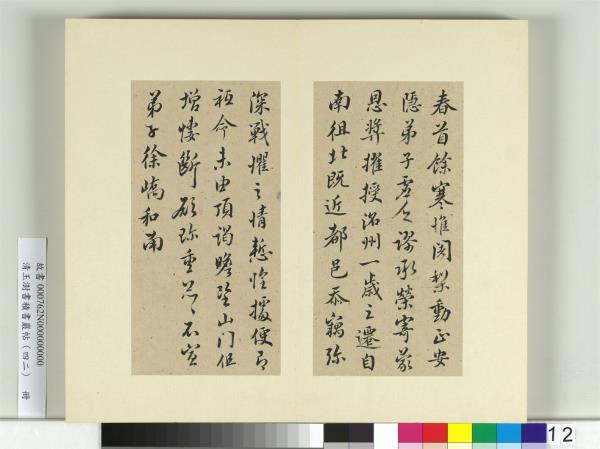 春首餘寒惟闍梨動止安
隱弟子虛乏謬承榮寄蒙
恩獎擢授洺州一歲之遷自
南徂北既近都邑忝竊弥
深戰懼之情慙惶據便即
祗命未由頂謁瞻望山門但
增悽斷願弥重㤀㤀不宣
弟子徐嶠和南
故書000762N000000000
清王澍書積書巖帖(四二) 冊
12